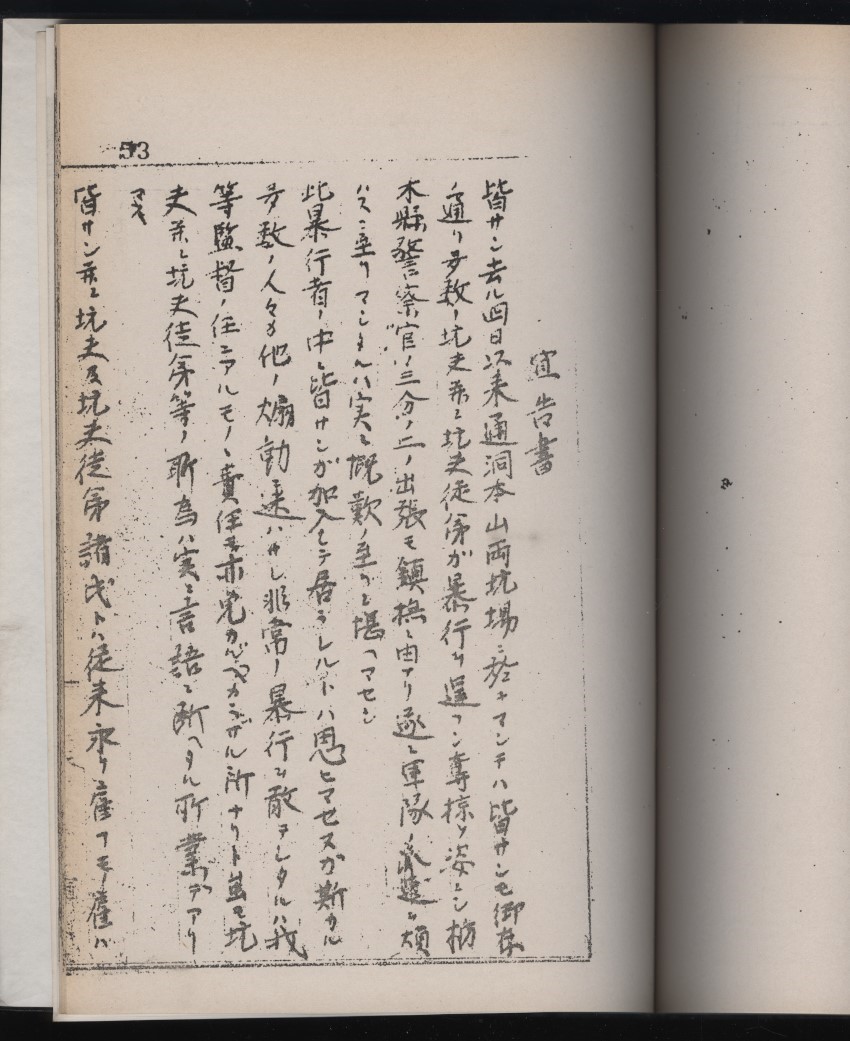 53
宣告書
皆サン去ル四日以来通洞本山両坑場ニ於キマシテハ皆サンモ御存
ノ通リ多数ノ坑夫并ニ坑夫徒弟ガ暴行ヲ逞フシ奪掠ヲ姿ニシ栃
木縣警察官ノ三分ノ二ノ出張モ鎮撫ニ由ナク遂ニ軍隊ノ派遣ヲ煩
ハスニ至リマシタルハ実ニ慨歎ノ至リニ堪ヘマセン
此暴行者ノ中ニ皆サンガ加入シテ居ラレルトハ思ヒマセヌガ斯カル
多数ノ人々ガ他ノ煽動ニ迷ハサレ非常ノ暴行ヲ敢テシタルハ我
等監督ノ任ニアルモノヽ責任モ亦免カルベカラザル所ナリト虽モ坑
夫并ニ坑夫徒弟等ノ所為ハ実ニ言語ニ断ヘタル所業デアリ
マス
皆サン并ニ坑夫及坑夫徒弟諸氏トハ従来永ク雇フモノ雇ハ